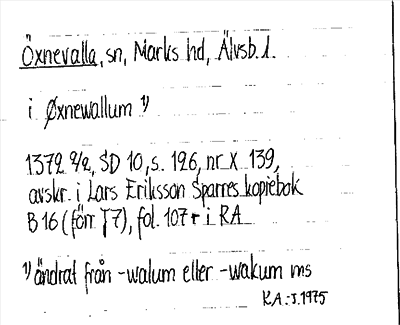 Öxnevalla, sn, Marks hd, Älvsb. l.
i Øxnewallum 1)
1372 9/2, SD 10, s. 126, nr X 139,
avskr. i Lars Eriksson Sparres kopiebok
B 16 (förr T7), fol. 107 r i RA
1) ändrat från -walum eller -wakum ms
RA:J.1975